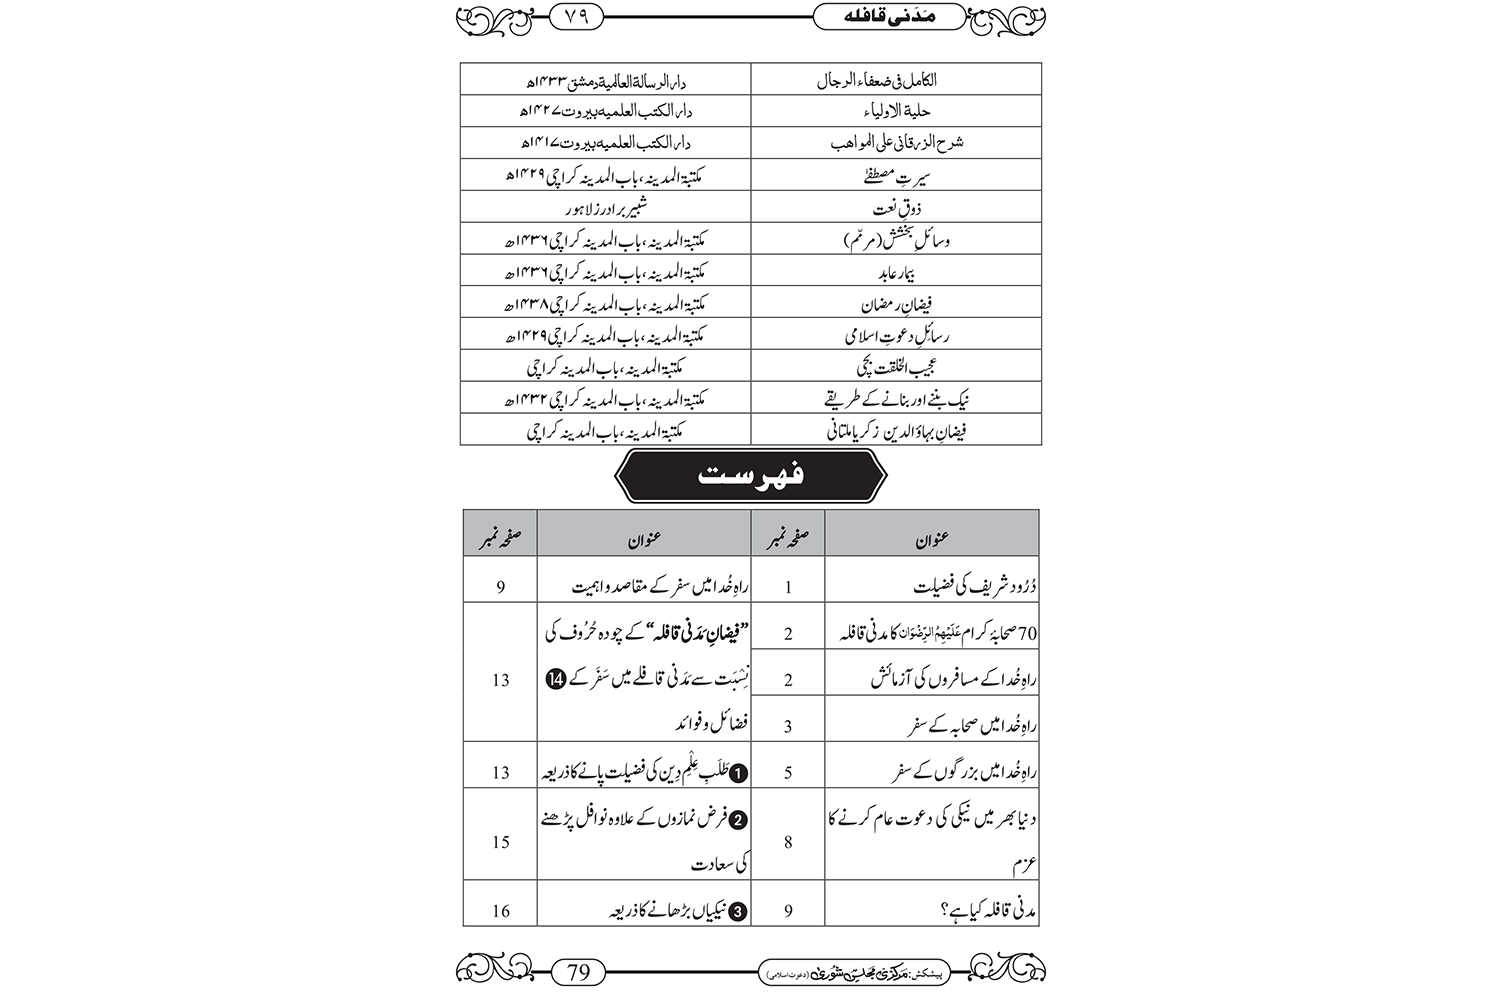 مَدَنی قافلہ ۷۹
الکامل فی ضعفاء الرجال دار الرسالة العالمية دمشق ۱۴۳۳ھ
حلیة الاولیاء دار الکتب العلمیہ بیروت ۱۴۲۷ھ
شرح الزرقانی علی المواھب دار الکتب العلمیہ بیروت ۱۴۱۷ھ
سیرتِ مصطفےٰ مکتبۃ المدینہ، باب المدینہ کراچی ۱۴۲۹ھ
ذوقِ نعت شبیر برادرز لاہور
وسائلِ بخشش (مرمّم) مکتبۃ المدینہ، باب المدینہ کراچی ۱۴۳۶ھ
بیمار عابد مکتبۃ المدینہ، باب المدینہ کراچی ۱۴۳۶ھ
فیضانِ رمضان مکتبۃ المدینہ، باب المدینہ کراچی ۱۴۳۸ھ
رسائلِ دعوتِ اسلامی مکتبۃ المدینہ، باب المدینہ کراچی ۱۴۲۹ھ
عجیب الخلقت بچی مکتبۃ المدینہ، باب المدینہ کراچی
نیک بننے اور بنانے کے طریقے مکتبۃ المدینہ، باب المدینہ کراچی ۱۴۳۲ھ
فیضانِ بہاؤالدین زکریا ملتانی مکتبۃ المدینہ، باب المدینہ کراچی
فہرست
عنوان صفحہ نمبر عنوان صفحہ نمبر
دُرُود شریف کی فضیلت 1
70 صحابۂ کرام عَلَیْہِمُ الرِّضْوَان کا مدنی قافلہ 2
راہِ خُدا کے مسافروں کی آزمائش 2
راہِ خُدا میں صحابہ کے سفر 3
راہِ خُدا میں بزرگوں کے سفر 5
دنیا بھر میں نیکی کی دعوت عام کرنے کا
عزم 8
مدنی قافلہ کیا ہے؟ 9
راہِ خُدا میں سفر کے مقاصد و اہمیت 9
”فیضانِ مَدَنی قافلہ“ کے چودہ حُرُوف کی
نِسْبَت سے مَدَنی قافلے میں سَفَر کے 14 13
فضائل و فوائد
1 طَلَبِ عِلْمِ دِین کی فضیلت پانے کا ذریعہ 13
2 فرض نمازوں کے علاوہ نوافل پڑھنے
کی سعادت 15
3 نیکیاں بڑھانے کا ذریعہ 16
پیشکش: مرکزی مجلسِ شوریٰ (دعوتِ اسلامی) 79